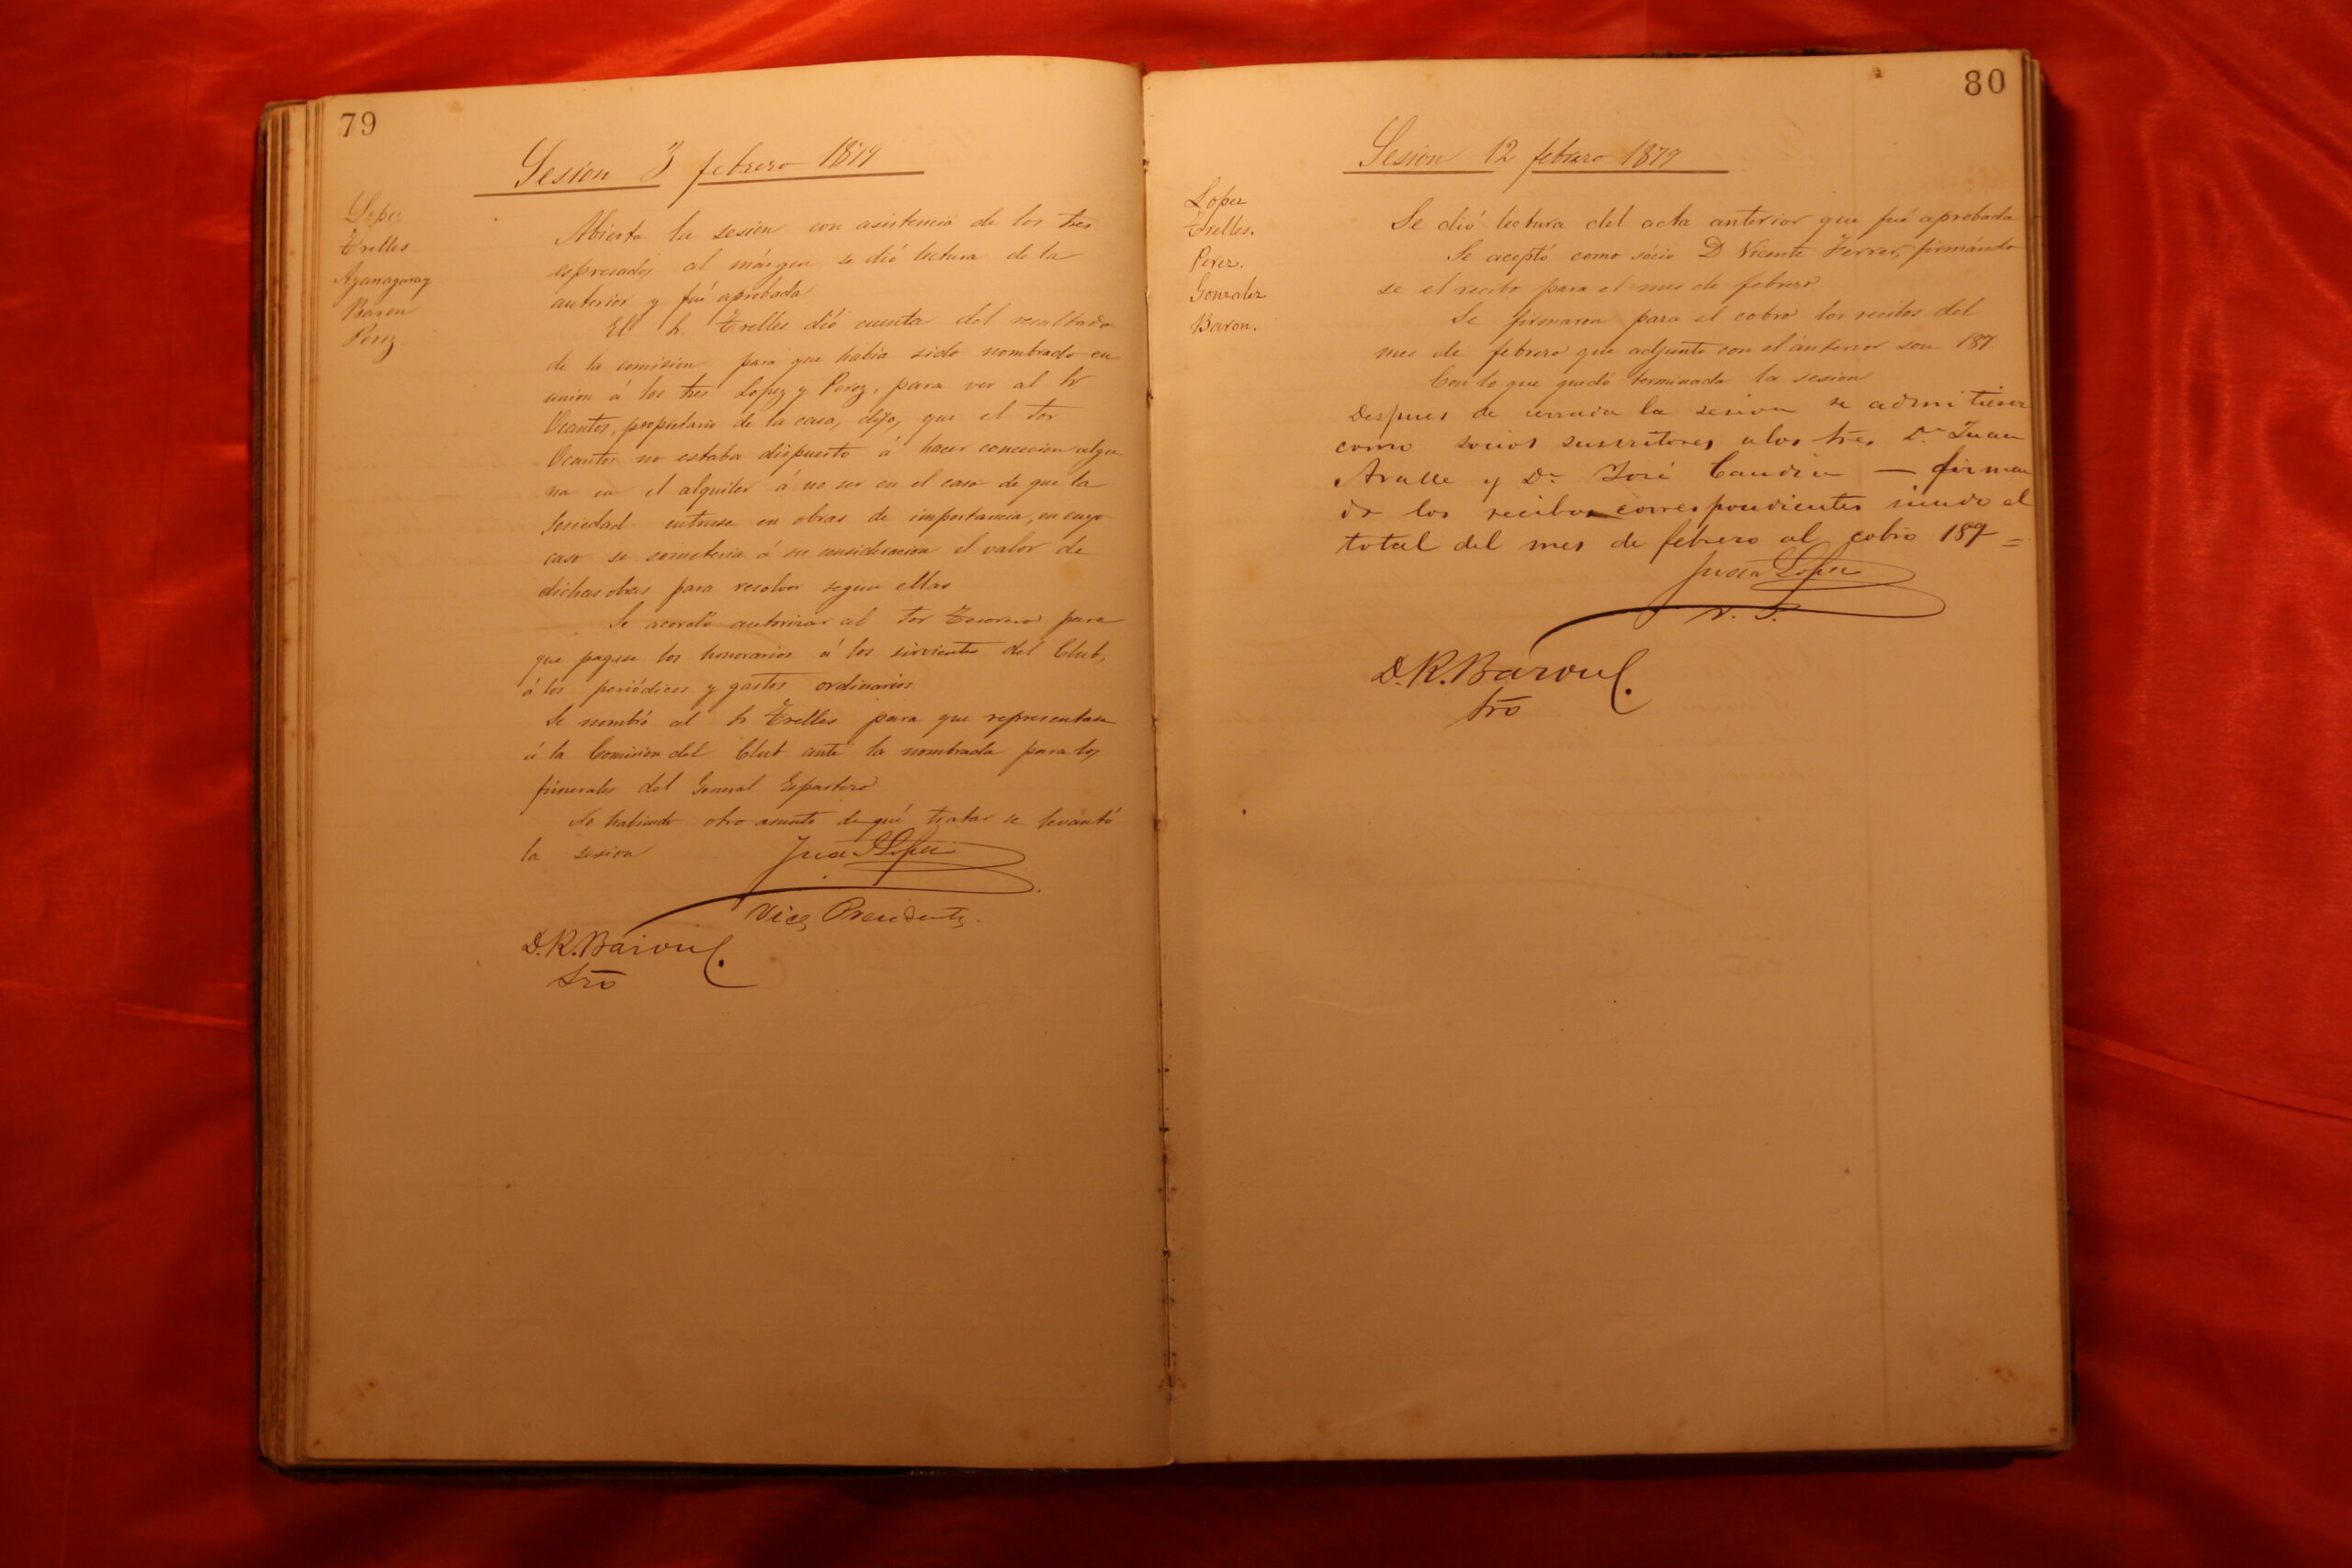 79
Sesion 3 febrero 1879
Lopez
Trelles
Ayanagaray
Baron
Perez
Abierta la sesion con asistencia de los Sres
espresados al márgen se dió lectura de la
anterior y fué aprobada
El Sr. Trelles dió cuenta del resultado
de la comision para que habia sido nombrado en
union á los Sres Lopez y Perez, para ver al Sr
Ocantos, propietario de la casa, dijo, que el Sor
Ocantos no estaba dispuesto á hacer concecion algu
na en el alquiler á no ser en el caso de que la
Sociedad entrase en obras de importancia, en cuyo
caso se someteria á su consideracion el valor de
dichas obras para resolver segun ellas
Se acordó autorizar al Sor Tesorero para
que pagase los honorarios á los sirvientes del Club,
á los periódicos y gastos ordinarios
Se nombró al Sr Trelles para que representase
á la Comision del Club ante la nombrada para los
funerales del General Espartero
No habiendo otro asunto de qué tratar se levantó
la sesion
Juan Lopez
Vice Presidente
D.R. Baron
Srio
80
Sesion 12 febrero 1879
Lopez
Trelles.
Perez.
Gonzalez
Baron.
Se dió lectura del acta anterior que fué aprobada
Se aceptó como sócio D Vicente Ferrer, firmándo
se el recibo para el mes de febrero
Se firmaron para el cobro los recibos del
mes de febrero que adjunto con el anterior son 187
Con lo que quedó terminada la sesion
Despues de cerrada la sesion se admitieron
como socios suscritores a los Sres Dn Juan
Aralle y Dn José Candia — firman
do los recibos correspondientes siendo el
total del mes de febrero al cobro 189 =
Juan Lopez
V. P.
D.R. Baron
Srio